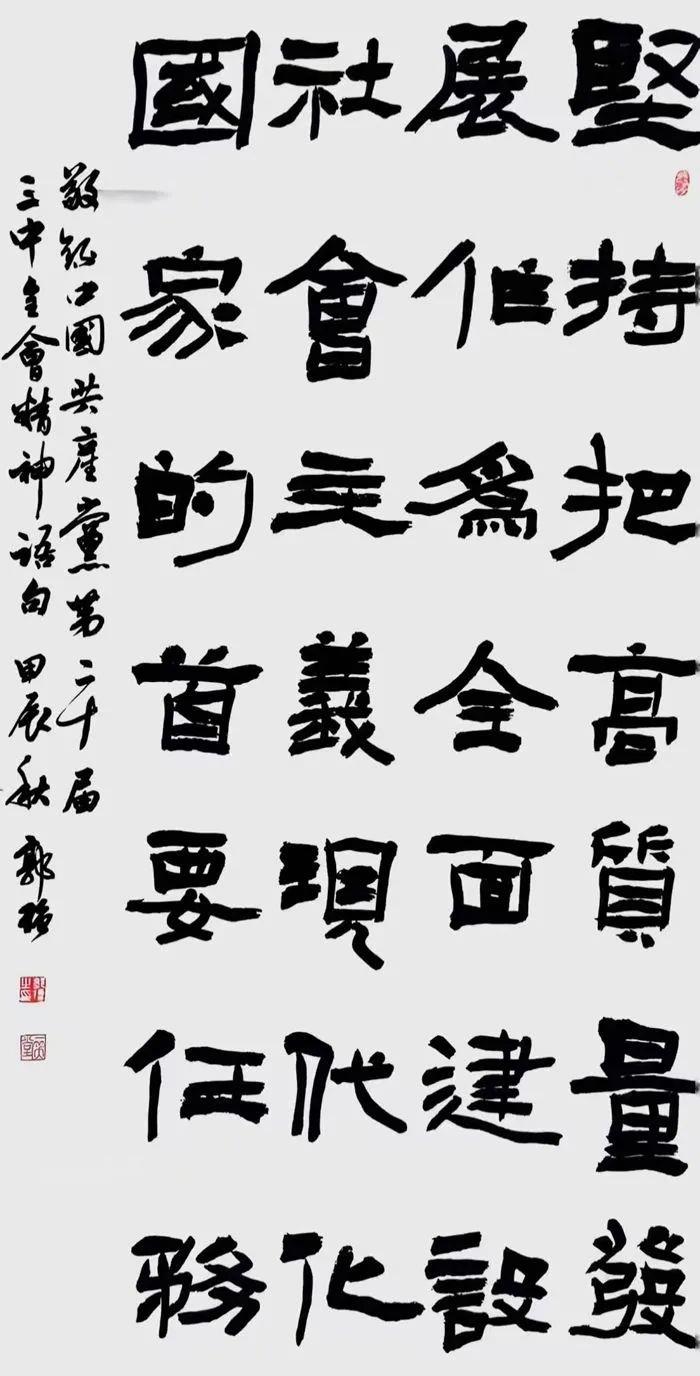 堅持把高質量發
展作爲全面建設
社會主義現代化
國家的首要任務
敬錄中國共產黨第二十届
三中全會精神語句 甲辰秋 郭